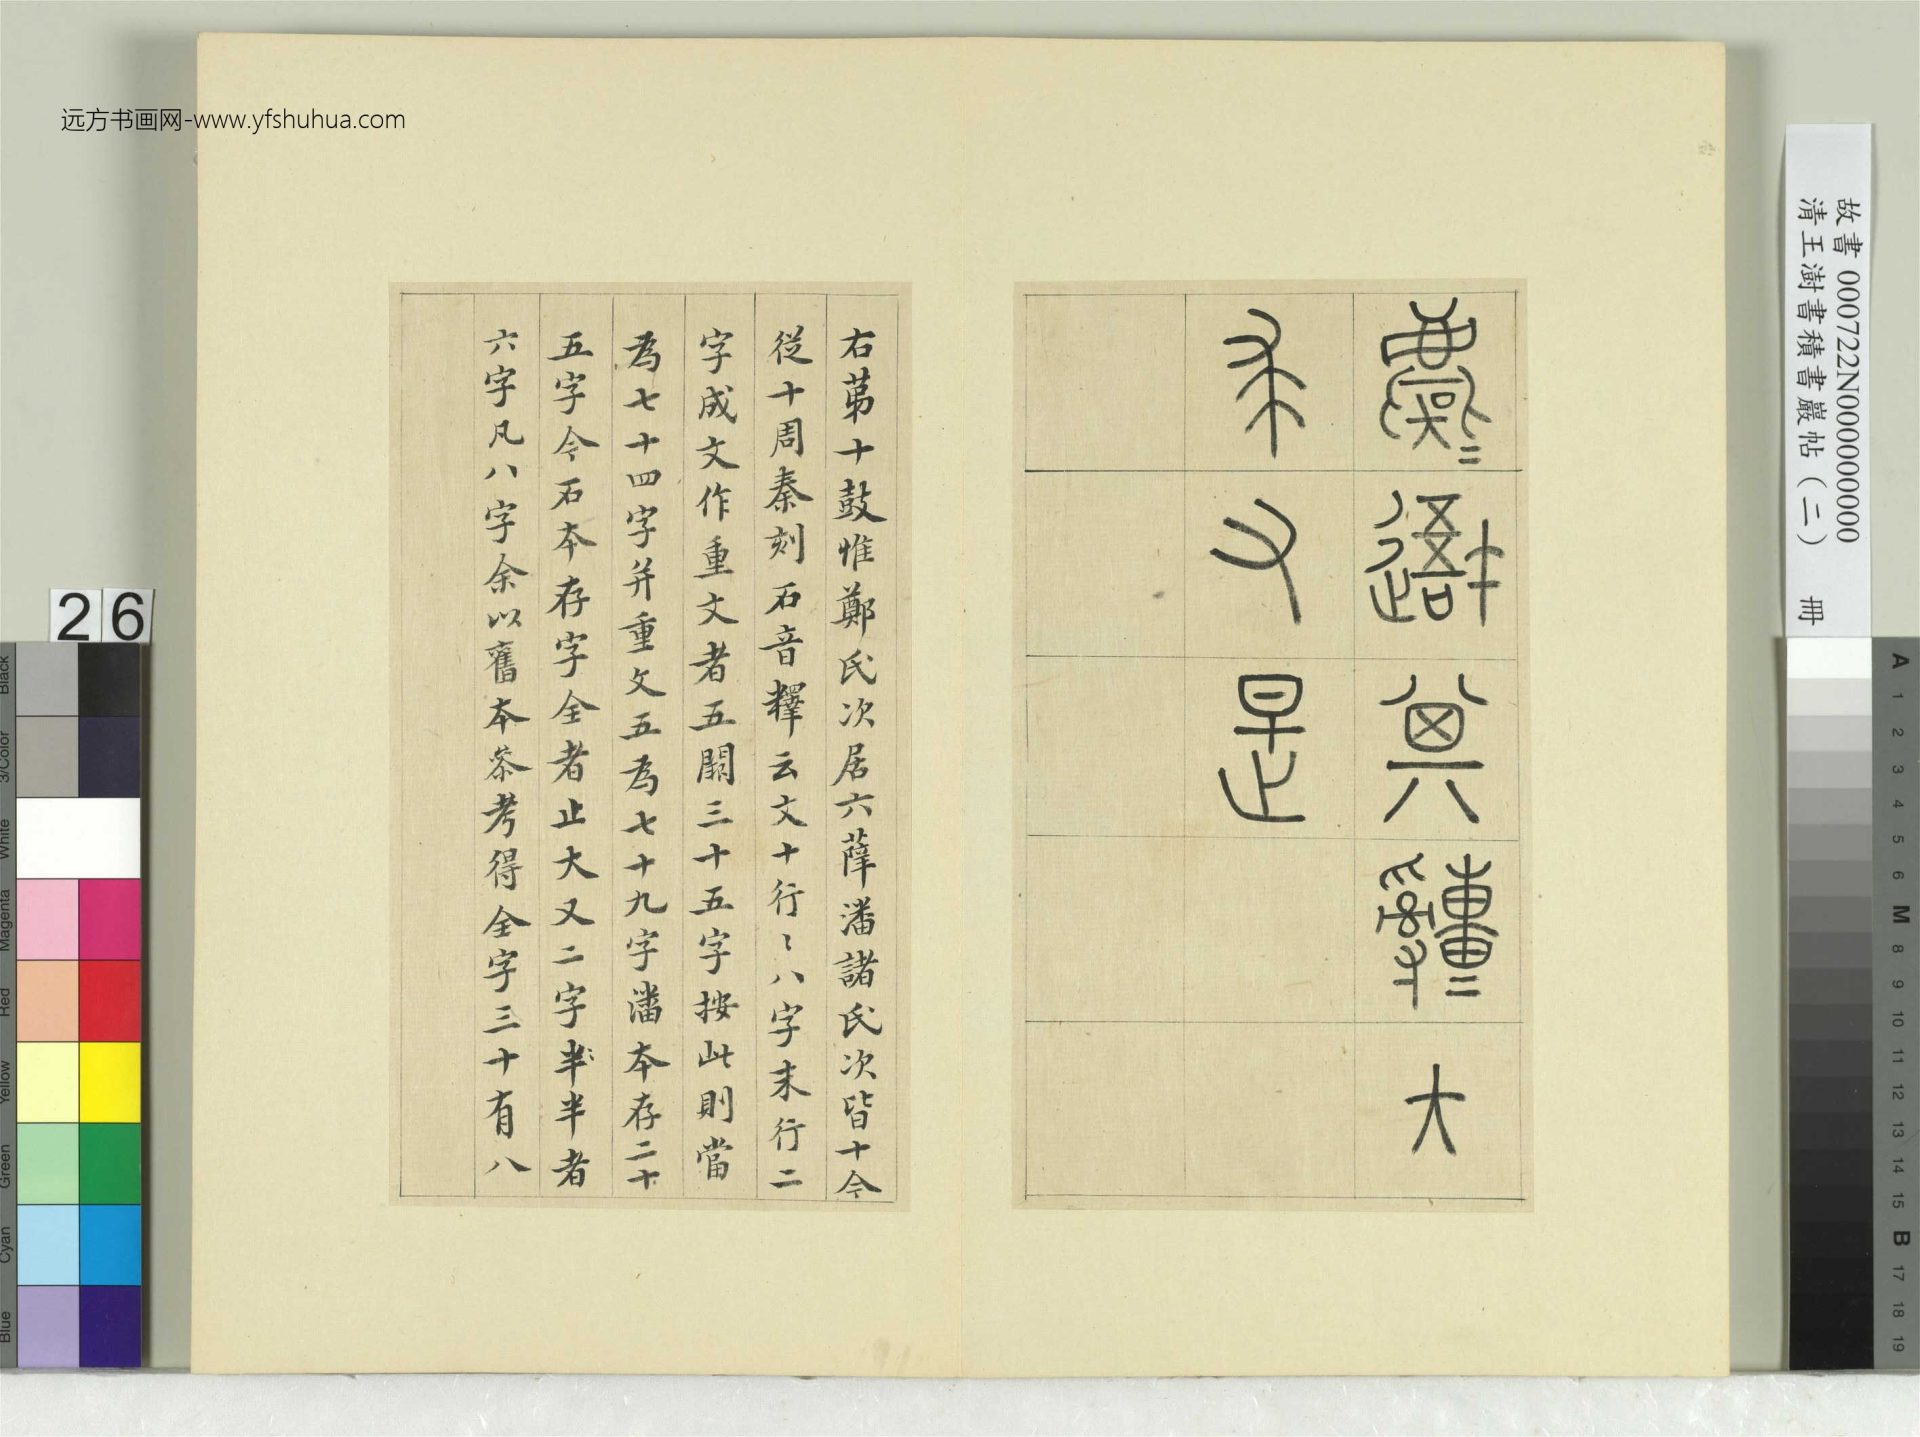 远方书画网-www.yfshuhua.com
故書 000722N000000000
清王澍書積書巖帖（二） 冊
大
求又是
右苐十鼓惟鄭氏次居六薛潘諸氏次皆十今
從十周秦刻石音釋云文十行〻八字末行二
字成文作重文者五闕三十五字按此則當
為七十四字并重文五為七十九字潘本存二十
五字今石本存字全者止大又二字半半者
六字凡八字余以舊本叅考得全字三十有八
26
Black
3/Color
White
Magenta
Red
Yellow
Green
Cyan
Blue
A 1 2 3 4 5 6 M 8 9 10 11 12 13 14 15 B 17 18 19